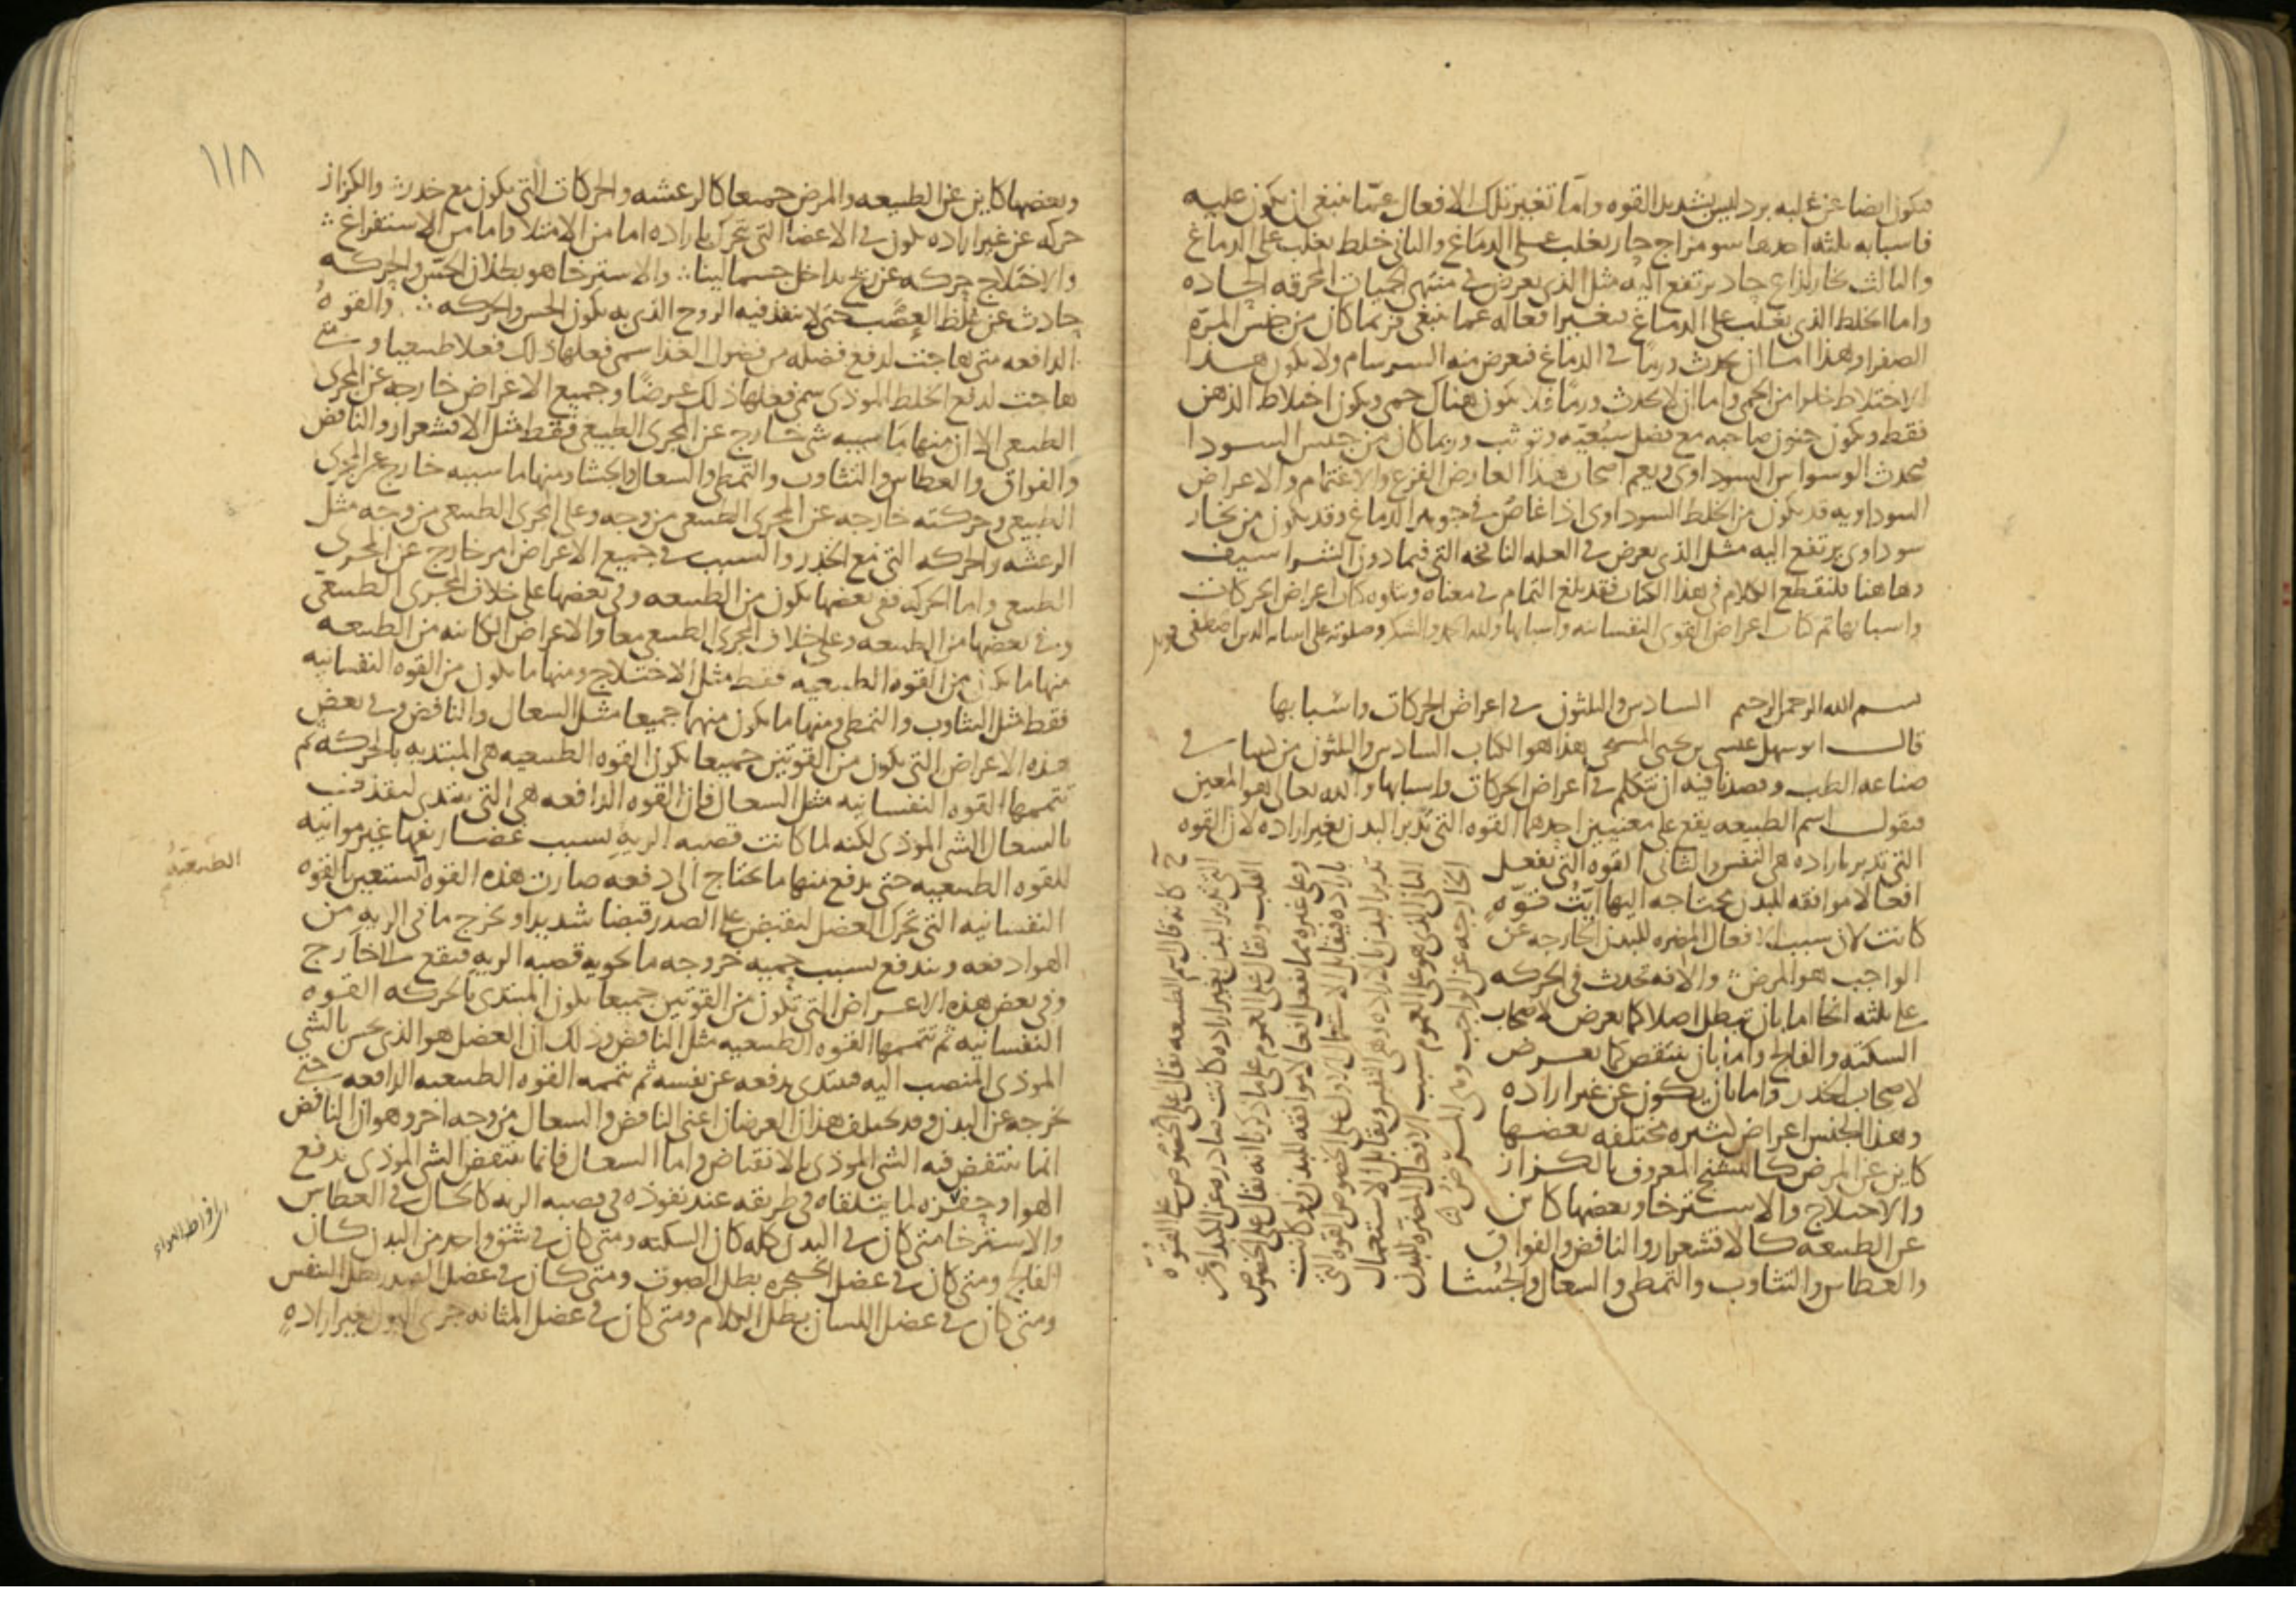 فيكون ايضا عن غلبه برد ليس بشديد القوه واما تغيير تلك الافعال عما ينبغي ان يكون عليه
فاسبابه ثلثه احدها سو مزاج حار يغلب على الدماغ والثاني خلط يغلب على الدماغ
والثالث بخار لذاع حاد يرتفع اليه مثل الذي يعرض في منتهى الحميات المحرقه الحاده
واما الخلط الذي يغلب على الدماغ فيغير افعاله عما ينبغي فربما كان من جنس المره
الصفرا وهذا اما ان يحدث ورما في الدماغ فيعرض منه السرسام ولا يكون هذا
الاختلاط خلوا من الحمى واما ان لا يحدث ورما فلا يكون هناك حمى ويكون اختلاط الذهن
فقط ويكون جنون صاحبه مع فضل سبعيه وتوثب وربما كان من جنس السودا
فيحدث الوسواس السوداوي ويعم اصحاب هذا العارض الفزع والاغتمام والاعراض
السوداويه قد يكون من الخلط السوداوي اذا غاص في جوهر الدماغ وقد يكون من بخار
سوداوي يرتفع اليه مثل الذي يعرض في العله النافخه التي فيما دون الشراسيف
وهاهنا فلنقطع الكلام في هذا الكتاب فقد بلغ التمام في معناه ويتلوه كتاب اعراض الحركات
واسبابها تم كتاب اعراض القوى النفسانيه واسبابها ولله الحمد والشكر وصلوته على انبيائه الذين اصطفى
بسم الله الرحمن الرحيم السادس والثلثون في اعراض الحركات واسبابها
قال ابو سهل عيسى بن يحيى المسيحي هذا هو الكتاب السادس والثلثون من كتبنا في
صناعه الطب وقصدنا فيه ان نتكلم في اعراض الحركات واسبابها والله تعالى هو المعين
فنقول اسم الطبيعه يقع على معنيين احدهما القوه التي تدبر البدن بغير اراده لان القوه
التي تدبر باراده هي النفس والثاني القوه التي تفعل
افعالا موافقه للبدن يحتاج اليها ايت قوه
كانت لان سبب الافعال المضره للبدن الخارجه عن
الواجب هو المرض والافه تحدث في الحركه
على ثلثه انحا اما بان تبطل اصلا كما يعرض لاصحاب
السكته والفالج واما بان ينتقص كما يعرض
لاصحاب الخدر واما بان يكون عن غير اراده
وهذا الجنس اعراض كثيره مختلفه بعضها
كاين عن المرض كالتشنج المعروف بالكزاز
والاختلاج والاسترخا وبعضها كاين
عن الطبيعه كالاقشعرار والنافض والفواق
والعطاس والتثاوب والتمطي والسعال والجشا
كانه قال اسم الطبيعه يقال على الخصوص على القوه
التي تدبر البدن بغير اراده كانت صادره عن الكبد او عن
القلب ويقال على العموم على ما ذكر انه يقال على الخصوص
وعلى غيره مما يفعل افعالا موافقه للبدن ولو كانت
باراده فيقابل الاستعمال الاول على الخصوص القوه التي
تدبر البدن بالاراده وهي النفس ويقابل الاستعمال
الثاني الذي هو على العموم سبب الافعال المضره للبدن
الخارجه عن الواجب وهي المرض
١١٨
وبعضها كاين عن الطبيعه والمرض جميعا كالرعشه والحركات التي يكون مع خدر والكزاز
حركه عن غير اراده يكون في الاعضا التي تتحرك باراده اما من الامتلا واما من الاستفراغ
والاختلاج حركه عن ريح يداخل جسما لينا والاسترخا هو بطلان الحس والحركه
حادث عن غلظ العصب حتى لا ينفذ فيه الروح الذي به يكون الحس والحركه والقوه
الدافعه متى هاجت لدفع فضله من فضول الغذا سمي فعلها ذلك فعلا طبيعيا ومتى
هاجت لدفع الخلط الموذي سمي فعلها ذلك عرضا وجميع الاعراض خارجه عن المجرى
الطبيعي الا ان منها ما سببه شي خارج عن المجرى الطبيعي فقط مثل الاقشعرار والنافض
والفواق والعطاس والتثاوب والتمطي والسعال والجشا ومنها ما سببه خارج عن المجرى
الطبيعي وحركته خارجه عن المجرى الطبيعي من وجه وعلى المجرى الطبيعي من وجه مثل
الرعشه والحركه التي مع الخدر والسبب في جميع الاعراض امر خارج عن المجرى
الطبيعي واما الحركه ففي بعضها يكون من الطبيعه وفي بعضها على خلاف المجرى الطبيعي
وفي بعضها من الطبيعه وعلى خلاف المجرى الطبيعي معا والاعراض الكاينه من الطبيعه
منها ما يكون من القوه الطبيعيه فقط مثل الاختلاج ومنها ما يكون من القوه النفسانيه
فقط مثل التثاوب والتمطي ومنها ما يكون منهما جميعا مثل السعال والنافض وفي بعض
هذه الاعراض التي يكون من القوتين جميعا يكون القوه الطبيعيه هي المبتديه بالحركه ثم
تتممها القوه النفسانيه مثل السعال فان القوه الدافعه هي التي تبتدي لتقذف
بالسعال الشي الموذي لكنه لما كانت قصبه الريه بسبب غضاريفها غير مواتيه
للقوه الطبيعيه حتى يدفع منها ما يحتاج الى دفعه صارت هذه القوه تستعين بالقوه
النفسانيه التي تحرك العضل لتقبض على الصدر قبضا شديدا ويخرج ما في الريه من
الهوا دفعه ويندفع بسبب حميه خروجه ما تحويه قصبه الريه فيقع الى خارج
وفي بعض هذه الاعراض التي تكون من القوتين جميعا يكون المبتدي بالحركه القوه
النفسانيه ثم تتممها القوه الطبيعيه مثل النافض وذلك ان العضل هو الذي يحس بالشي
الموذي المنصب اليه فيبتدي بدفعه عن نفسه ثم تتممه القوه الطبيعيه الدافعه حتى
تخرجه عن البدن وقد يختلف هذان العرضان اعني النافض والسعال من وجه اخر وهو ان النافض
انما ينتفض فيه الشي الموذي بالانقباض واما السعال فانما ينتفض الشي الموذي بدفع
الهوا وحفزه لما يتلقاه في طريقه عند نفوذه في قصبه الريه كالحال في العطاس
والاسترخا متى كان في البدن كله كان السكته ومتى كان في شق واحد من البدن كان
الفالج ومتى كان في عضل الحنجره بطل الصوت ومتى كان في عضل الصدر بطل التنفس
ومتى كان في عضل اللسان بطل الكلام ومتى كان في عضل المثانه جرى البول بغير اراده
الطبيعيه